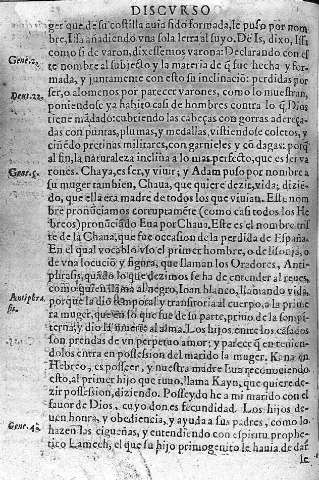 DISCVRSO
ger que de su costilla auia sido formada, le puso por nom-
bre, Issa añadiendo vna sola letra al suyo. De Is, dixo, Issa
como si de varon, dixessemos varona: Declarando con es-
te nombre al subjeto y la materia de q̃ fue hecha y for-
mada, y juntamente con esto su inclinaciõ: perdidas por
ser, o alomenos por parecer varones, como lo muestran,
poniendose ya habito casi de hombres contra lo q̃ Dios
tiene mãdado: cubriendo las cabeças con gorras adereça-
das con puntas, plumas, y medallas, vistiendose coletos, y
ciñẽdo pretinas militares, con garnieles y cõ dagas: porq̃
al fin, la naturaleza inclina a lo mas perfecto, que es ser va
rones. Chaya, es ser, y viuir; y Adam puso por nombre a
su muger tambien, Chaua, que quiere dezir, vida; dizie-
do, que ella era madre de todos los que viuian. Este nom
bre pronũciamos corruptamẽte (como casi todos los He
breos) pronũciado Eua por Chaua. Este es el nombre tris
te de la Chaua, que fue occasion de la perdida de España.
En el qual vocablo vso el primer hombre, o de lisonja, o
de vna locució y figura, que llaman los Oradores, Anti-
phrasis, quãdo lo que dezimos se ha de entender al reues,
como quien llama al negro, Ioan blanco, llamando vida,
porque la dio tẽmporal y transitoria al cuerpo, a la prime
ra muger, que en lo que fue de su parte, priuo de la sempi-
terna, y dio la muerte al alma. Los hijos entre los casados
son prendas de vn perpetuo amor; y parece q̃ en tenien-
dolos entra en possession del marido la muger. Kana en
Hebreo, es posseer, y nuestra madre Eua reconociendo
esto, al primer hijo que tuuo, llama Kayn, que quiere de-
zir possession, diziendo. Posseydo he a mi marido con el
fauor de Dios, cuyo don es fecundidad. Los hijos de-
uen honra, y obediencia, y ayuda a sus padres, como lo
hazen las cigueñas, y entendiendo con espiritu prophe-
tico Lamech, el que su hijo primogenito le hauia de dar
se
Gene. 2.
Deut. 22.
Gene. 5.
Antiphra
sis.
Gene. 4.